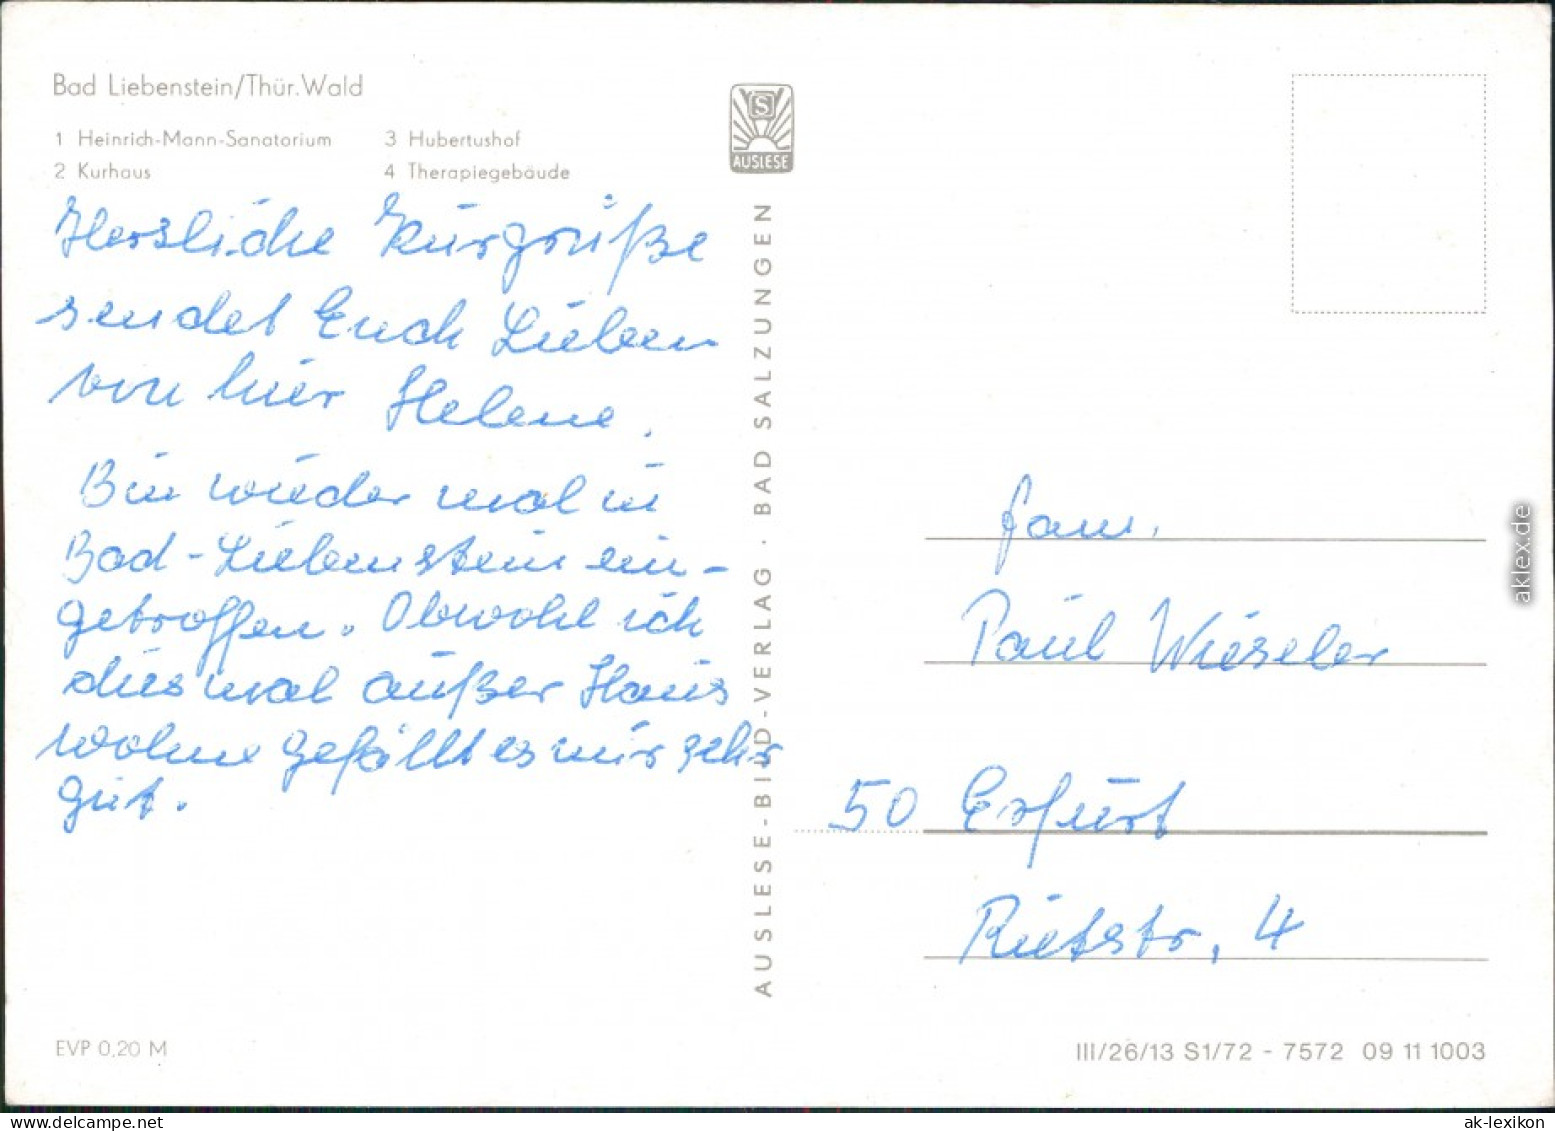 Bad Liebenstein/Thür. Wald
1 Heinrich-Mann-Sanatorium
2 Kurhaus
3 Hubertushof
4 Therapiegebäude
Herzliche Kurgrüße
sendet Euch Lieben
von hier Helene.
Bin wieder mal in
Bad-Liebenstein ein-
getroffen. Obwohl ich
dies mal außer Haus
wohne gefällt es mir sehr
gut.
S
AUSLESE
AUSLESE-BILD-VERLAG · BAD SALZUNGEN
Fam.
Paul Wieseler
50 Erfurt
Rietstr, 4
EVP 0,20 M
III/26/13 S1/72 - 7572 09 11 1003
aklex.de
ak-lexikon